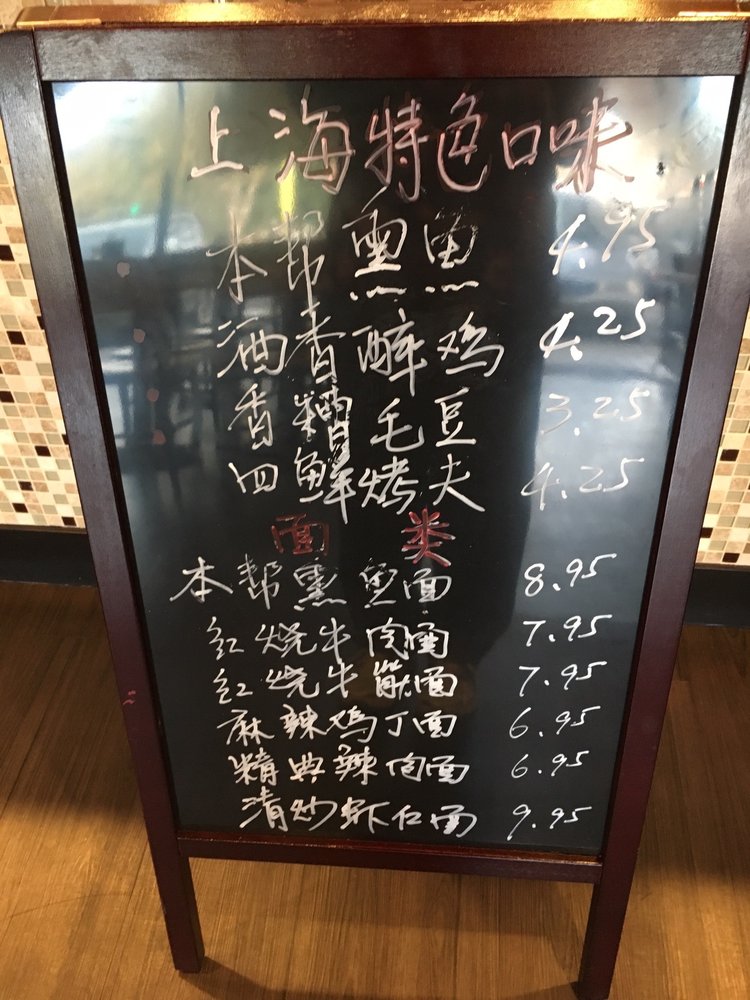 上海特色口味
本帮熏鱼 4.95
酒香醉鸡 4.25
香糟毛豆 3.25
四鲜烤夫 4.25
面类
本帮熏鱼面 8.95
红烧牛肉面 7.95
红烧牛筋面 7.95
麻辣鸡丁面 6.95
精典辣肉面 6.95
清炒虾仁面 9.95